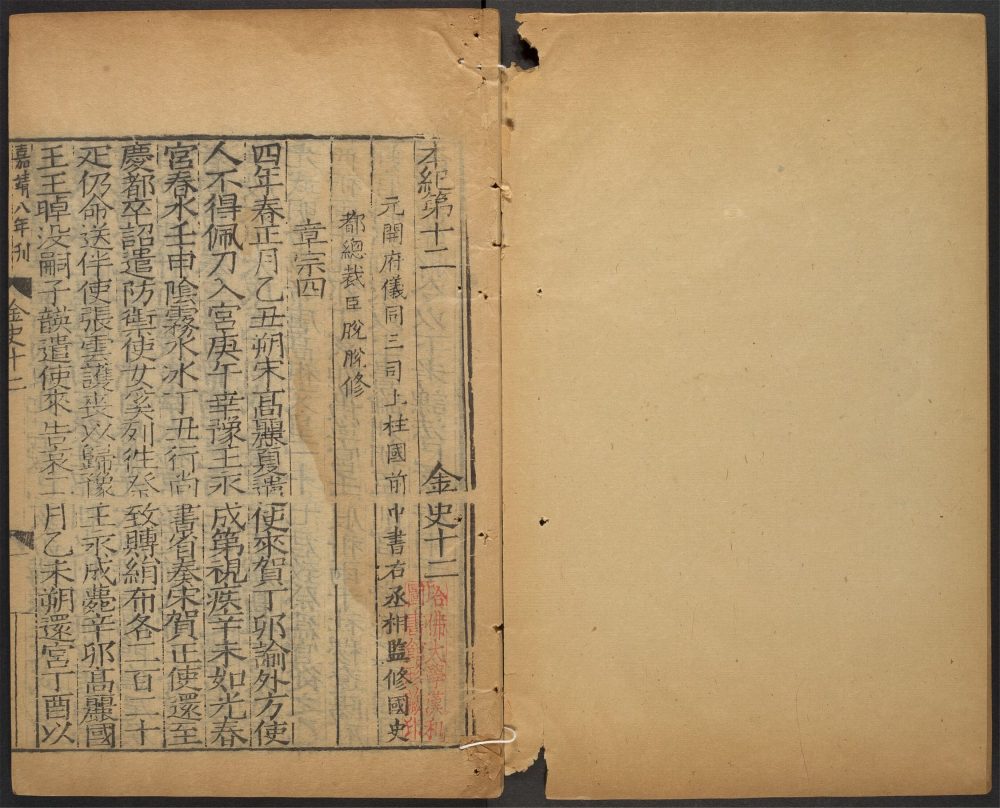 本紀第十二 金史十二
元開府儀同三司上柱國前中書右丞相監修國史
都總裁臣脫脫修
章宗四
四年春正月乙丑朔宋高麗夏遣使來賀丁卯諭外方使
人不得佩刀入宮庚午幸豫王永成第視疾辛未如光春
宮春水壬申陰霧木冰丁丑行尚書省奏宋賀正使還至
慶都卒詔遣防禦使女奚列徃祭致賻絹布各二百二十
疋仍命送伴使張雲護喪以歸豫王永成薨辛卯高麗國
王王晫没嗣子韺遣使來告哀二月乙未朔還宮丁酉以
嘉靖八年刊 金史十二
哈佛大學漢和
圖書館珍藏印